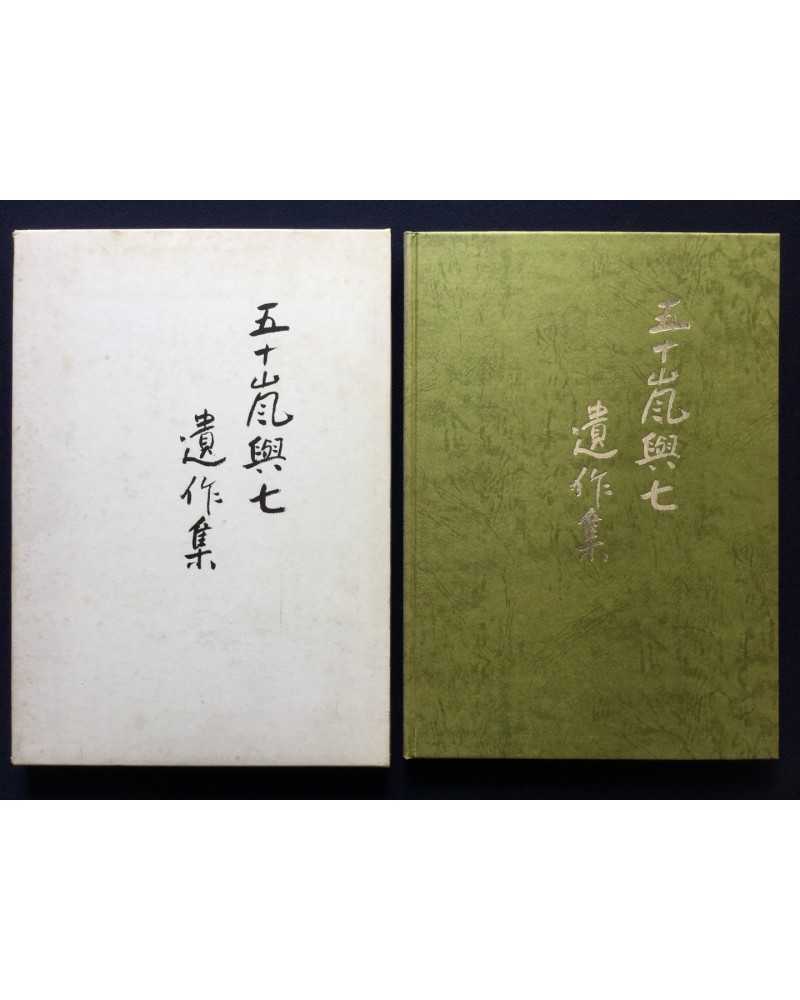 五十嵐與七
遺作集
五十嵐與七
遺作集